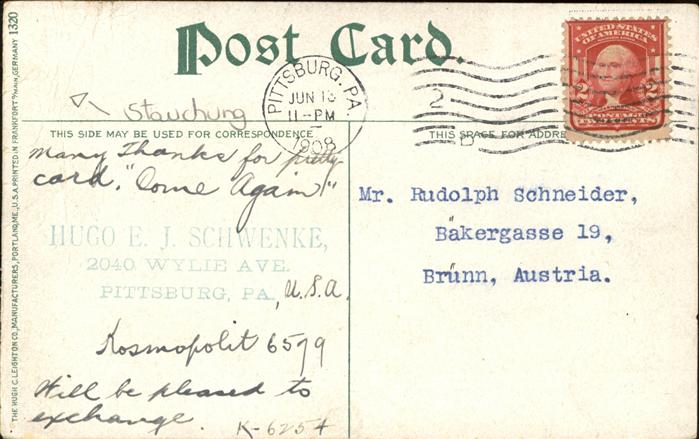 Post Card.
1320
THE HUGH C. LEIGHTON CO., MANUFACTURERS, PORTLAND, ME., U.S.A. PRINTED IN FRANKFORT o/MAIN, GERMANY
Stauchung
PITTSBURG, PA.
JUN 13
11-PM
1908
2
UNITED STATES
OF AMERICA
2 2
POSTAGE
TWO CENTS
THIS SIDE MAY BE USED FOR CORRESPONDENCE
THIS SPACE FOR ADDRE
Many Thanks for pretty
card. "Come Again"
HUGO E. J. SCHWENKE,
2040 WYLIE AVE.
PITTSBURG, PA, U.S.A.
Kosmopolit 6579
Will be pleased to
exchange.
K-6254
Mr. Rudolph Schneider,
Bäkergasse 19,
Brünn, Austria.